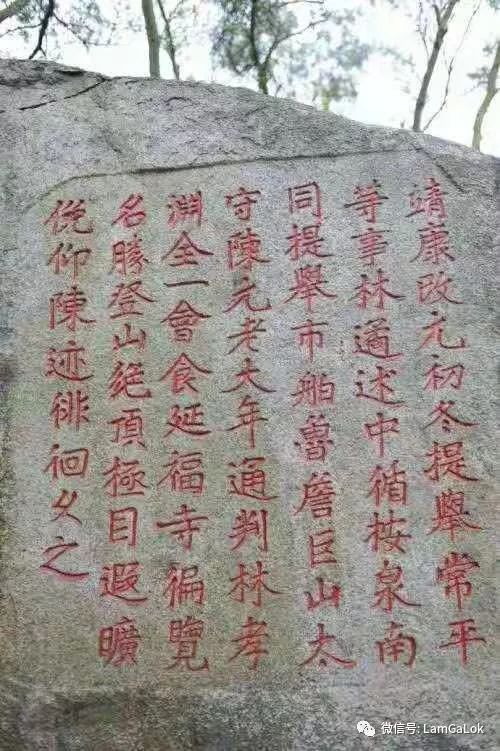 靖康改元初冬提舉常平
等事林遹述中循按泉南
同提舉市舶魯詹巨山太
守陳元老大年通判林孝
淵全一會食延福寺徧覽
名勝登山絶頂極目遐曠
俛仰陳迹徘徊久之
微信号: LamGaLok